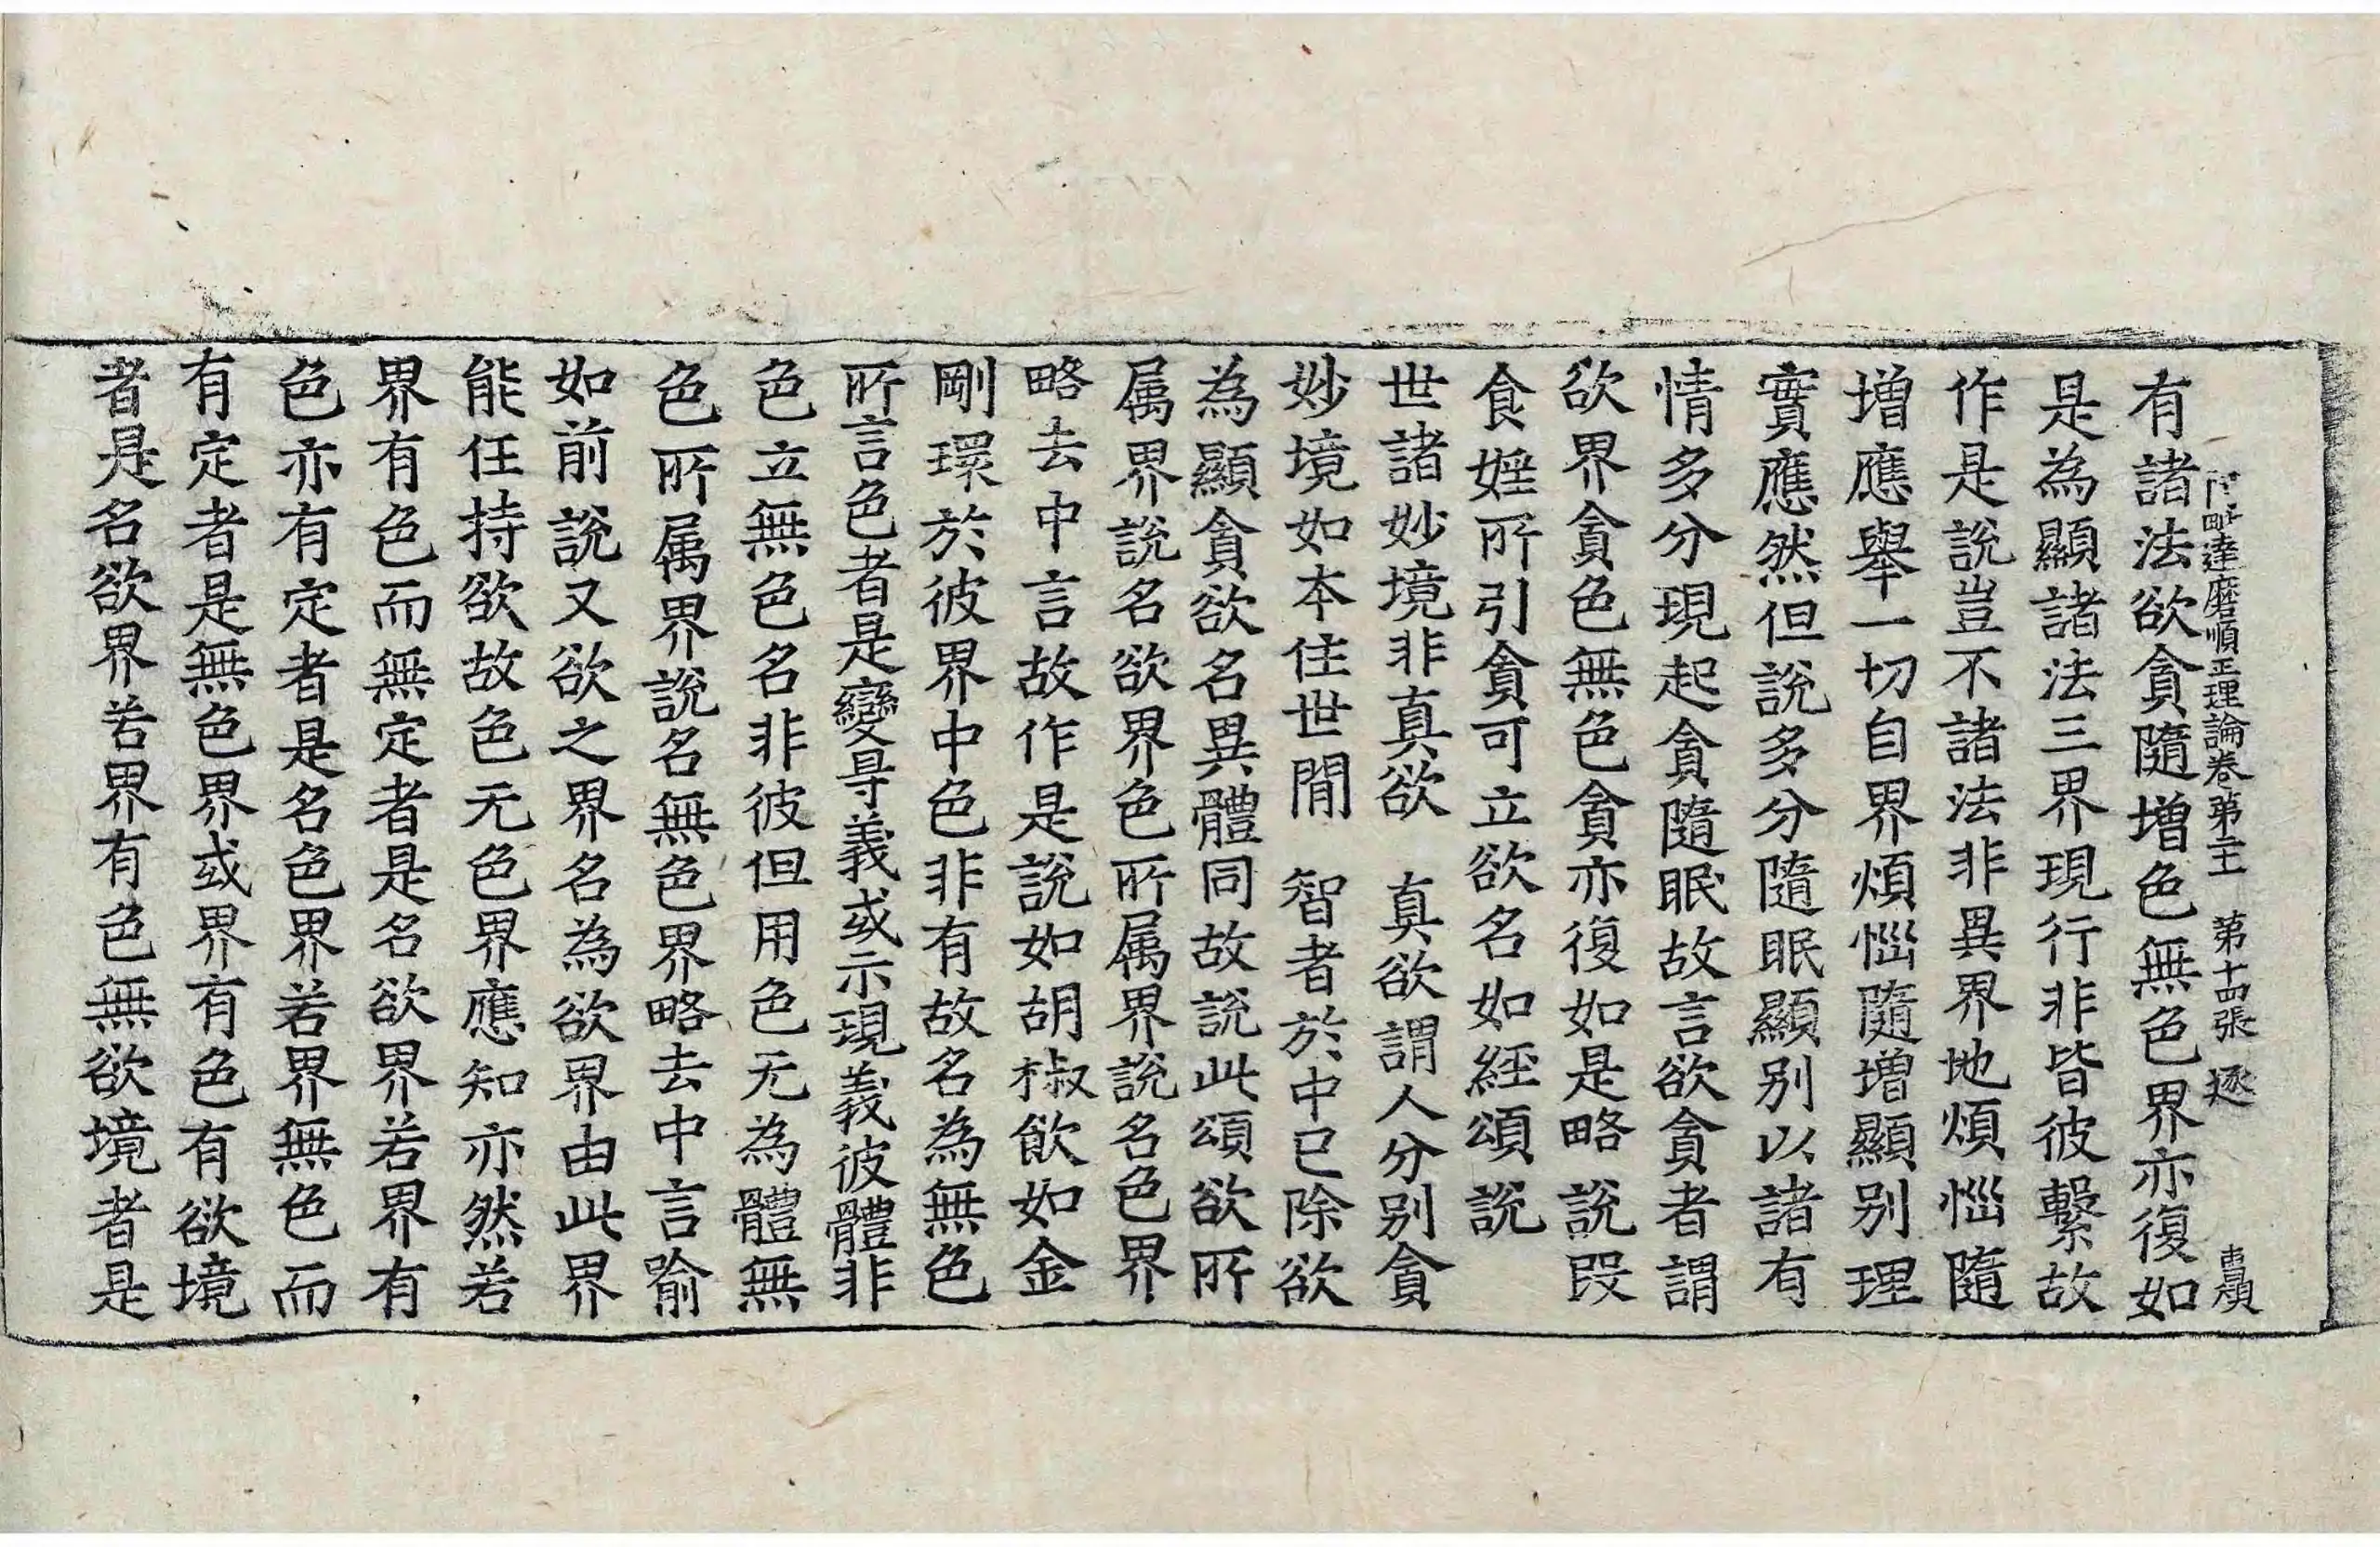 阿毗達磨順正理論卷第二十一 第十四張 逐
有諸法欲貪隨增色無色界亦復如
是為顯諸法三界現行非皆彼繫故
作是說豈不諸法非異界地煩惱隨
增應舉一切自界煩惱隨增顯別理
實應然但說多分隨眠顯別以諸有
情多分現起貪隨眠故言欲貪者謂
欲界貪色無色貪亦復如是略說段
食婬所引貪可立欲名如經頌說
世諸妙境非真欲 真欲謂人分別貪
妙境如本住世間 智者於中已除欲
為顯貪欲名異體同故說此頌欲所
属界說名欲界色所属界說名色界
略去中言故作是說如胡椒飲如金
剛環於彼界中色非有故名為無色
所言色者是變㝵義或示現義彼體非
色立無色名非彼但用色无為體無
色所属界說名無色界略去中言喻
如前說又欲之界名為欲界由此界
能任持欲故色无色界應知亦然若
界有色而無定者是名欲界若界有
色亦有定者是名色界若界無色而
有定者是無色界或界有色有欲境
者是名欲界若界有色無欲境者是